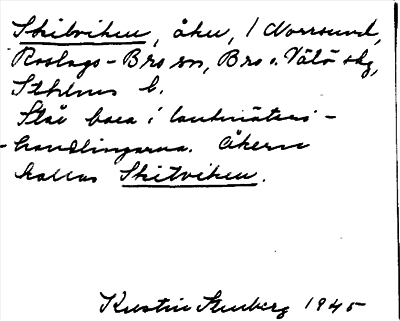 Skitviken, åker, 1 Norrsund,
Roslags-Bro sn, Bro o. Vätö skg,
Sthlms l.
Står bara i lantmäteri-
-handlingarna. Åkern
kallas Skitviken.
Kerstin Stenberg 1945